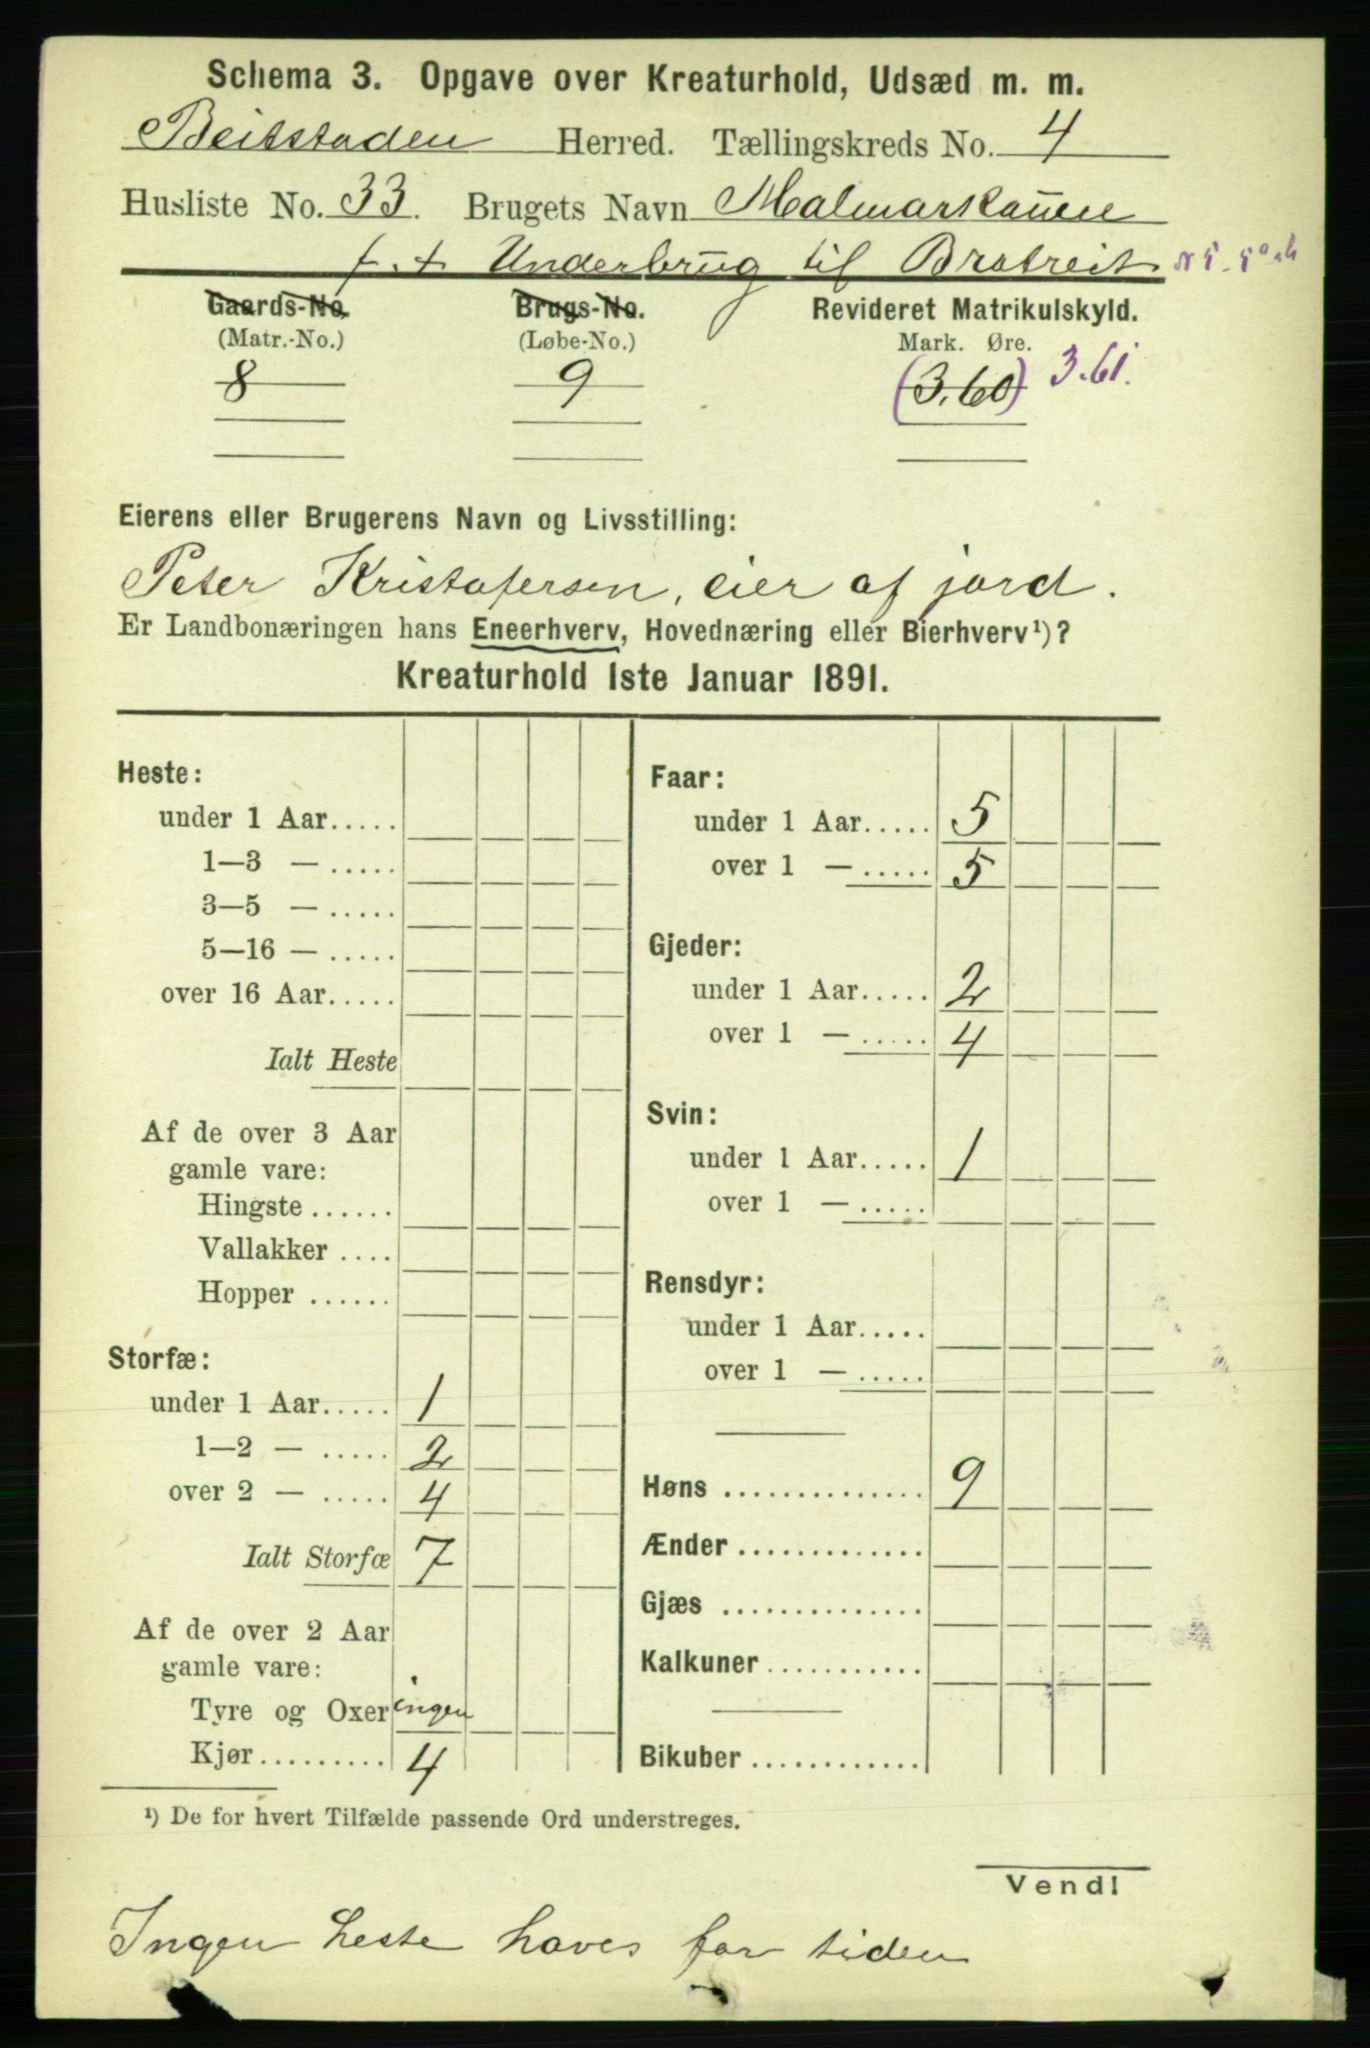 Schema 3. Opgave over Kreaturhold, Udsæd m. m.
Beitstaden Herred. Tællingskreds No. 4
Husliste No. 33. Brugets Navn
Underbrug til Bratreit
Gaards-No. Brugs-No. Revideret Matrikulskyld.
(Matr.-No.) (Løbe-No.) Mark. Øre.
8 9 (3.60) 3.61.
Eierens eller Brugerens Navn og Livsstilling:
Peter Kristofersen, eier af jord.
Er Landbonæringen hans Eneerhverv, Hovednæring eller Bierhverv¹)?
Kreaturhold 1ste Januar 1891.
Heste:
under 1 Aar.....
1—3 — .....
3—5 — .....
5—16 — .....
over 16 Aar.....
Ialt Heste
Af de over 3 Aar
gamle vare:
Hingste ......
Vallakker ....
Hopper ......
Storfæ:
under 1 Aar..... 1
1—2 — ..... 2
over 2 — ..... 4
Ialt Storfæ 7
Af de over 2 Aar
gamle vare:
Tyre og Oxer ingen
Kjør.......... 4
Faar:
under 1 Aar..... 5
over 1 — ..... 5
Gjeder:
under 1 Aar..... 2
over 1 — ..... 4
Svin:
under 1 Aar..... 1
over 1 — .....
Rensdyr:
under 1 Aar.....
over 1 — .....
Høns .............. 9
Ænder .............
Gjæs ..............
Kalkuner...........
Bikuber ............
¹) De for hvert Tilfælde passende Ord understreges.
Vend!
Ingen heste haves for tiden